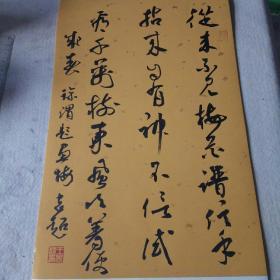 從来不見梅花譜信手
拈来自有神不信試
看千萬樹東風吹著便
成春 徐渭題画梅